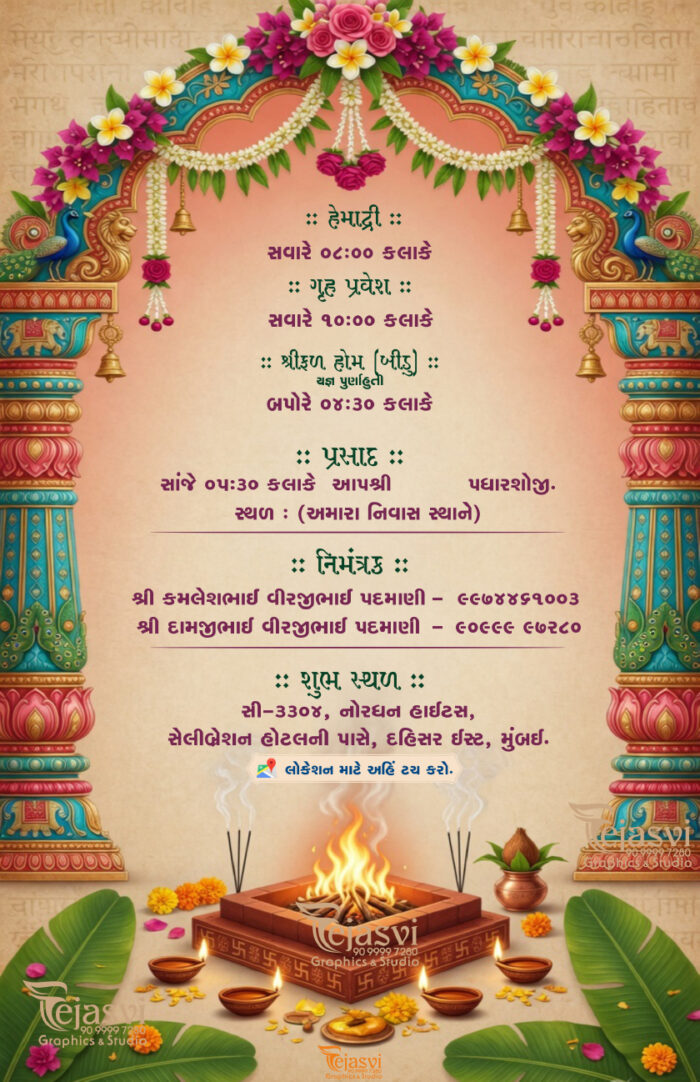 :: હેમાદ્રી ::
સવારે ૦૮:૦૦ કલાકે
:: ગૃહ પ્રવેશ ::
સવારે ૧૦:૦૦ કલાકે
:: શ્રીફળ હોમ (બીડુ) ::
યજ્ઞ પુર્ણાહુતી
બપોરે ૦૪:૩૦ કલાકે
:: પ્રસાદ ::
સાંજે ૦૫:૩૦ કલાકે આપશ્રી પધારશોજી.
સ્થળ : (અમારા નિવાસ સ્થાને)
:: નિમંત્રક ::
શ્રી કમલેશભાઈ વીરજીભાઈ પદમાણી - ૯૯૭૪૪૬૧૦૦૩
શ્રી દામજીભાઈ વીરજીભાઈ પદમાણી - ૯૦૯૯૯ ૯૭૨૮૦
:: શુભ સ્થળ ::
સી-૩૩૦૪, નોરધન હાઈટસ,
સેલીબ્રેશન હોટલની પાસે, દહિસર ઈસ્ટ, મુંબઈ.
લોકેશન માટે અહિં ટચ કરો.
Tejasvi
90 9999 7280
Graphics & Studio
Tejasvi
90 9999 7280
Graphics & Studio
Tejasvi
90 9999 7280
Graphics & Studio
Tejasvi
Graphics & Studio